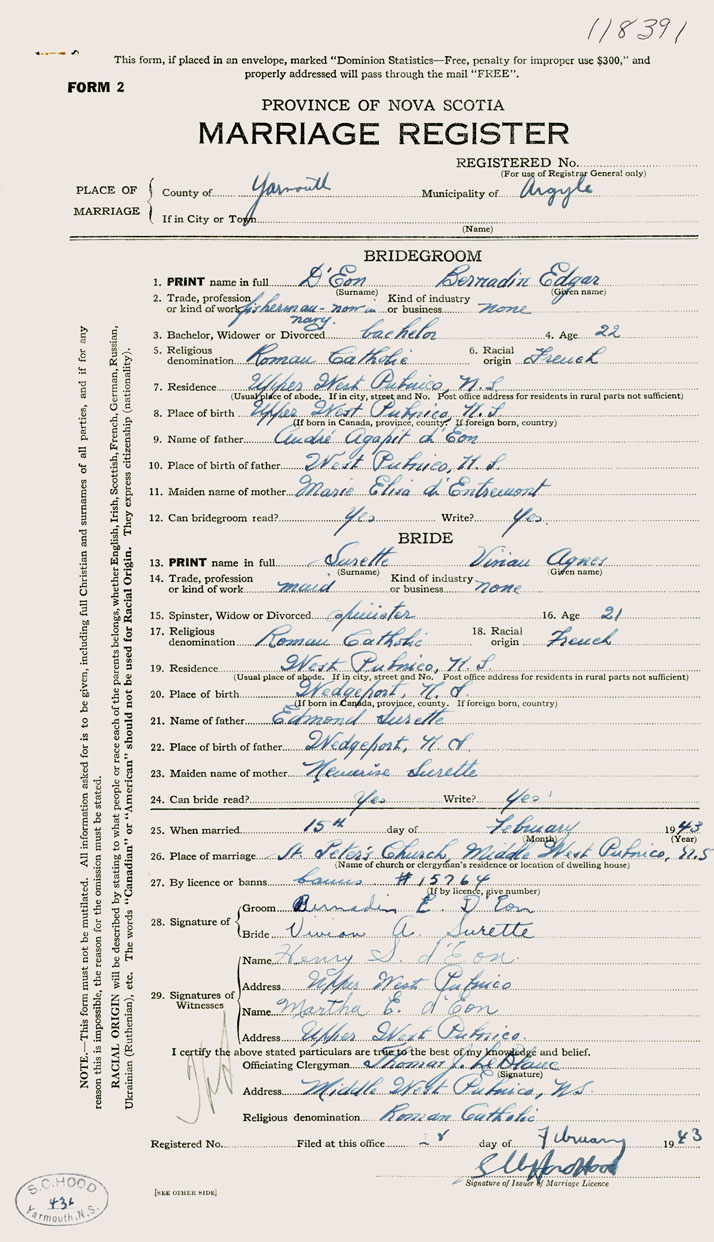 118391
This form, if placed in an envelope, marked "Dominion Statistics—Free, penalty for improper use $300," and
properly addressed will pass through the mail "FREE".
FORM 2
PROVINCE OF NOVA SCOTIA
MARRIAGE REGISTER
REGISTERED No.
(For use of Registrar General only)
PLACE OF MARRIAGE
County of Yarmouth Municipality of Argyle
If in City or Town
(Name)
BRIDEGROOM
1. PRINT name in full D'Eon Bernadin Edgar
(Surname) (Given name)
2. Trade, profession or kind of work fisherman - now in navy. Kind of industry or business none
3. Bachelor, Widower or Divorced bachelor 4. Age 22
5. Religious denomination Roman Catholic 6. Racial origin French
7. Residence Upper West Pubnico, N.S
(Usual place of abode. If in city, street and No. Post office address for residents in rural parts not sufficient)
8. Place of birth Upper West Pubnico, N.S
(If born in Canada, province, county. If foreign born, country)
9. Name of father André Agapit d'Eon
10. Place of birth of father West Pubnico, N.S.
11. Maiden name of mother Marie Elisa d'Entremont
12. Can bridegroom read? Yes Write? Yes.
BRIDE
13. PRINT name in full Surette Vivian Agnes
(Surname) (Given name)
14. Trade, profession or kind of work maid Kind of industry or business none
15. Spinster, Widow or Divorced spinster 16. Age 21
17. Religious denomination Roman Catholic 18. Racial origin French
19. Residence West Pubnico, N.S
(Usual place of abode. If in city, street and No. Post office address for residents in rural parts not sufficient)
20. Place of birth Wedgeport, N.S.
(If born in Canada, province, county. If foreign born, country)
21. Name of father Edmond Surette
22. Place of birth of father Wedgeport, N.S.
23. Maiden name of mother Surette
24. Can bride read? Yes Write? Yes
25. When married 15th day of February 1943
(Month) (Year)
26. Place of marriage St. Peter's Church, Middle West Pubnico, N.S
(Name of church or clergyman's residence or location of dwelling house)
27. By licence or banns banns #15764
(If by licence, give number)
28. Signature of
Groom Bernadin E. D'Eon
Bride Vivian A. Surette
29. Signatures of Witnesses
Name Henry S. d'Eon.
Address Upper West Pubnico
Name Martha E. d'Eon
Address Upper West Pubnico.
I certify the above stated particulars are true to the best of my knowledge and belief.
Officiating Clergyman Thomas J. LeBlanc
(Signature)
Address Middle West Pubnico, N.S.
Religious denomination Roman Catholic
Registered No. Filed at this office 28 day of February 1943
Signature of Issuer of Marriage Licence
[SEE OTHER SIDE]
S.C. HOOD
436
Yarmouth, N.S.
NOTE.—This form must not be mutilated. All information asked for is to be given, including full Christian and surnames of all parties, and if for any
reason this is impossible, the reason for the omission must be stated.
RACIAL ORIGIN will be described by stating to what people or race each of the parents belongs, whether English, Irish, Scottish, French, German, Russian,
Ukrainian (Ruthenian), etc. The words "Canadian" or "American" should not be used for Racial Origin. They express citizenship (nationality).